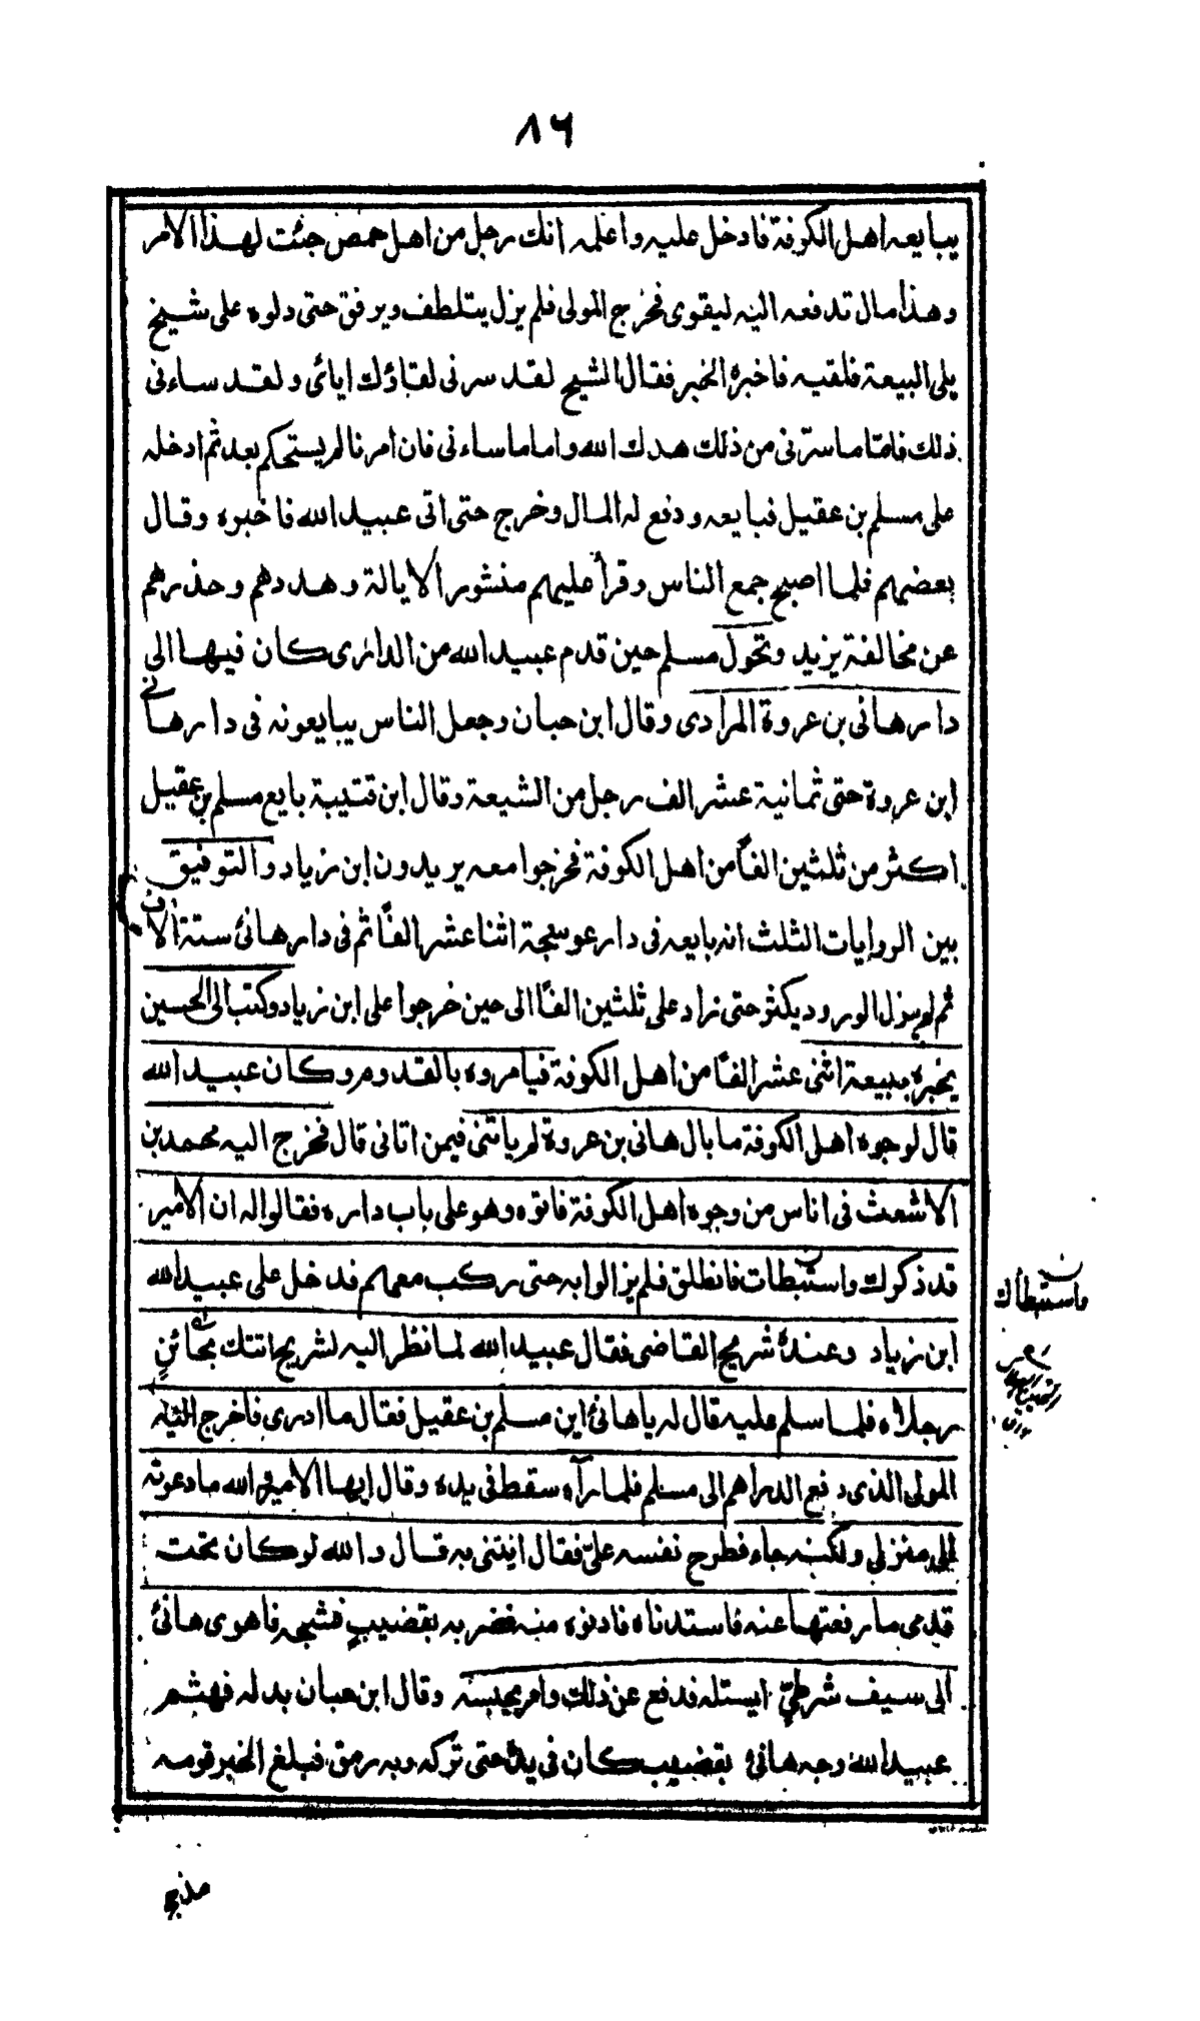 ٨٦
يبايعه اهل الكوفة فادخل عليه واعلمه انك رجل من اهل حمص جئت لهذا الامر
وهذا مال تدفعه اليه ليقوى فخرج المولى فلم يزل يتلطف ويرفق حتى دلوه على شيخ
يلى البيعة فلقيه فاخبره الخبر فقال الشيخ لقد سرنى لقاؤك اياى ولقد ساءنى
ذلك فامّا ما سرّنى من ذلك هدك الله واما ما ساءنى فان امرنا لم يستحكم بعد ثم ادخله
على مسلم بن عقيل فبايعه ودفع له المال وخرج حتى اتى عبيد الله فاخبره وقال
بعضهم فلما اصبح جمع الناس وقرأ عليهم منشور الايالة وهددهم وحذرهم
عن مخالفة يزيد وتحول مسلم حين قدم عبيد الله من الدار التى كان فيها الى
دار هانى بن عروة المرادى وقال ابن حبان وجعل الناس يبايعونه فى دار هانى
ابن عروة حتى ثمانية عشر الف رجل من الشيعة وقال ابن قتيبة بايع مسلم بن عقيل
اكثر من ثلثين الفاً من اهل الكوفة فخرجوا معه يريدون ابن زياد والتوفيق
بين الروايات الثلث انه بايعه فى دار عوسجة اثنا عشر الفاً ثم فى دار هانئ ستة الاف
ثم لم يزل الورود يكثر حتى زاد على ثلثين الفاً الى حين خرجوا على ابن زياد وكتب الى الحسين
يخبره ببيعة اثنى عشر الفاً من اهل الكوفة فيامروه بالقدوم وكان عبيد الله
قال لوجوه اهل الكوفة ما بال هانى بن عروة لم ياتنى فيمن اتانى قال فخرج اليه محمد بن
الاشعث فى اناس من وجوه اهل الكوفة فاتوه وهو على باب داره فقالوا له ان الامير
قد ذكرك واستبطات فانطلق فلم يزالوا به حتى ركب معهم فدخل على عبيد الله
واستبطأك
ابن زياد وعنده شريح القاضى فقال عبيد الله لما نظر اليه لشريح اتتك بحائنٍ
رجلاه فلما سلم عليه قال له يا هانئ اين مسلم بن عقيل فقال ما ادرى فاخرج اليه
المولى الذى دفع الدراهم الى مسلم فلما رآه سقط فى يده وقال ايها الامير والله ما دعوته
الى منزلى ولكنه جاء فطرح نفسه علىّ فقال ايتنى به قال والله لو كان تحت
قدمى ما رفعتها عنه فاستدناه فادنوه منه فضربه بقضيب فشجه فاهوى هانئ
الى سيف شرطىّ ليستله فدفع عن ذلك وامر بحبسه وقال ابن حبان بدله فهشم
عبيد الله وجه هانئ بقضيب كان فى يده حتى تركه وبه رمق فبلغ الخبر قومه
مذحج